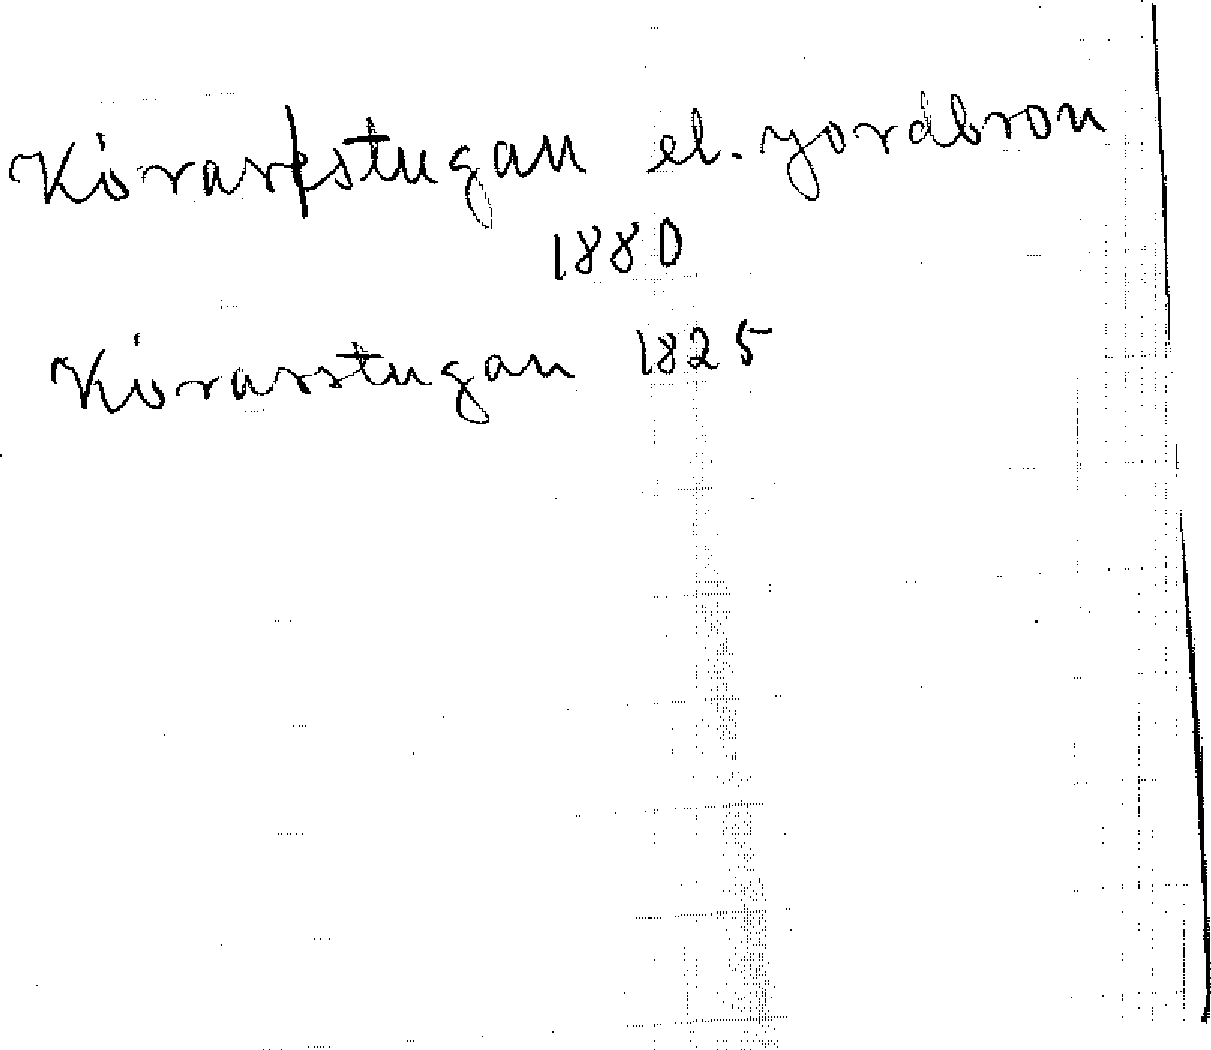 Körarstugan el. Jordbron
1880
Körarstugan 1825